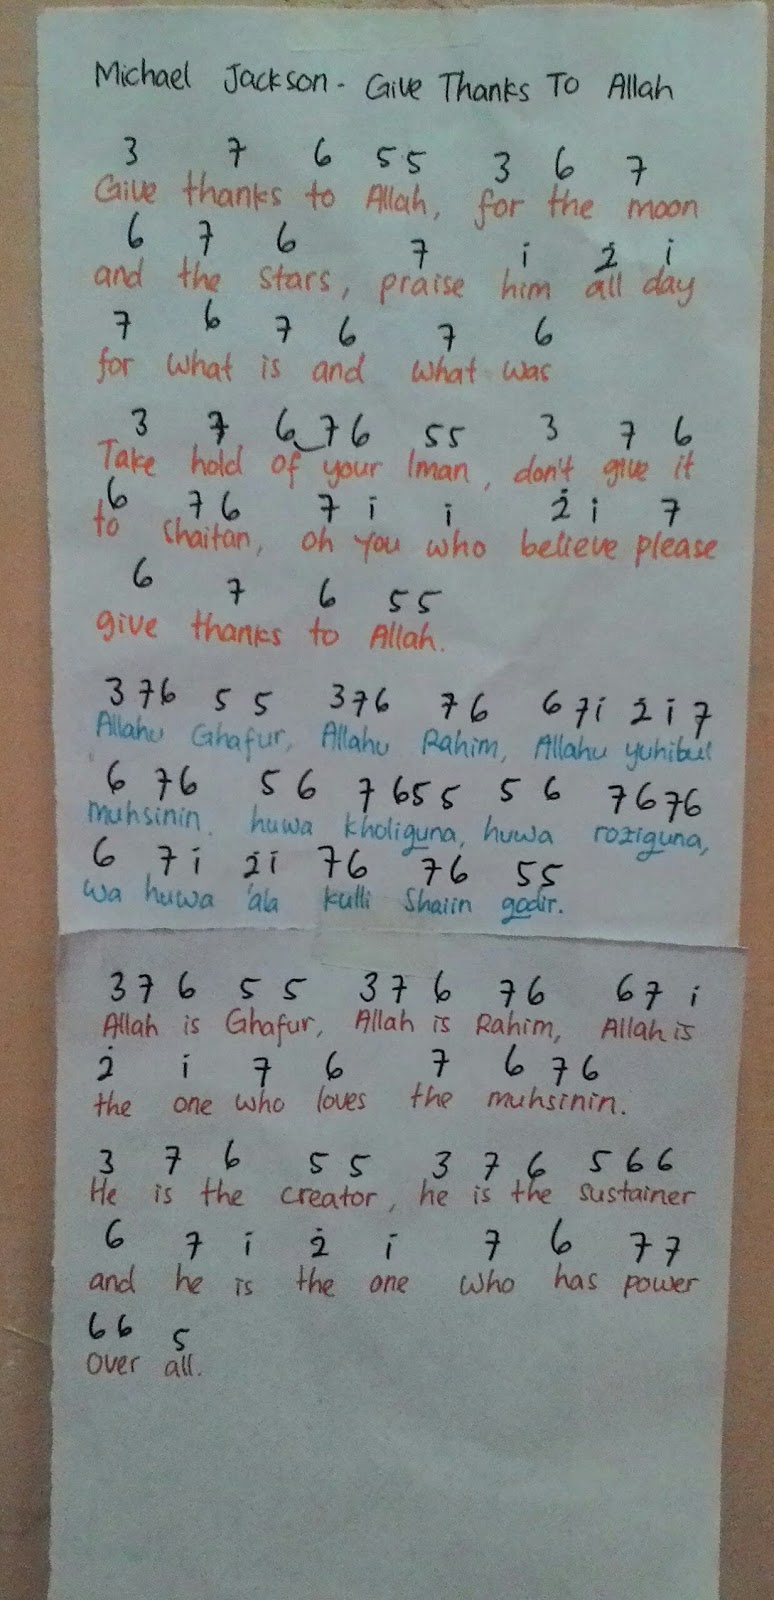 Michael Jackson - Give Thanks To Allah
3 7 6 5 5 3 6 7
Give thanks to Allah, for the moon
6 7 6 7 i 2̇ i
and the stars, praise him all day
7 6 7 6 7 6
for what is and what was
3 7 6 7 6 5 5 3 7 6
Take hold of your Iman, don't give it
6 7 6 7 i i 2̇ i 7
to Shaitan, oh you who believe please
6 7 6 5 5
give thanks to Allah.
3 7 6 5 5 3 7 6 7 6 6 7 i 2̇ i 7
Allahu Ghafur, Allahu Rahim, Allahu yuhibul
6 7 6 5 6 7 6 5 5 5 6 7 6 7 6
muhsinin. huwa kholiguna, huwa roziguna,
6 7 i 2̇ i 7 6 7 6 5 5
wa huwa 'ala kulli Shaiin godir.
3 7 6 5 5 3 7 6 7 6 6 7 i
Allah is Ghafur, Allah is Rahim, Allah is
2̇ i 7 6 7 6 7 6
the one who loves the muhsinin.
3 7 6 5 5 3 7 6 5 6 6
He is the creator, he is the sustainer
6 7 i 2̇ i 7 6 7 7
and he is the one who has power
6 6 5
over all.